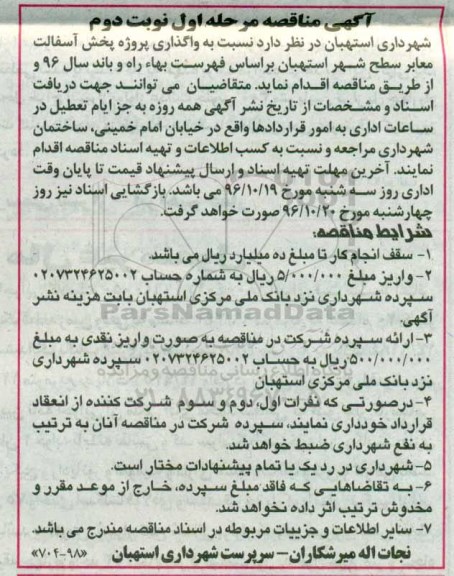 آگهی مناقصه مرحله اول نوبت دوم
شهرداری استهبان در نظر دارد نسبت به واگذاری پروژه پخش آسفالت
معابر سطح شهر استهبان براساس فهرست بهاء راه و باند سال ۹۶ و
از طریق مناقصه اقدام نماید. متقاضیان می توانند جهت دریافت
اسناد و مشخصات از تاریخ نشر آگهی همه روزه به جز ایام تعطیل در
ساعات اداری به امور قراردادها واقع در خیابان امام خمینی، ساختمان
شهرداری مراجعه و نسبت به کسب اطلاعات و تهیه اسناد مناقصه اقدام
نمایند. آخرین مهلت تهیه اسناد و ارسال پیشنهاد قیمت تا پایان وقت
اداری روز سه شنبه مورخ ۹۶/۱۰/۱۹ می باشد. بازگشایی اسناد نیز روز
چهارشنبه مورخ ۹۶/۱۰/۲۰ صورت خواهد گرفت.
شرایط مناقصه:
۱- سقف انجام کار تا مبلغ ده میلیارد ریال می باشد.
۲- واریز مبلغ ۵/۰۰۰/۰۰۰ ریال به شماره حساب ۰۲۰۷۳۲۴۶۲۵۰۰۲
سپرده شهرداری نزد بانک ملی مرکزی استهبان بابت هزینه نشر
آگهی.
ParsNamadData
۳- ارائه سپرده شرکت در مناقصه به صورت واریز نقدی به مبلغ
۵۰۰/۰۰۰/۰۰۰ ریال به حساب ۰۲۰۷۳۲۴۶۲۵۰۰۲ سپرده شهرداری
نزد بانک ملی مرکزی استهبان
۴- درصورتی که نفرات اول، دوم و سوم شرکت کننده از انعقاد
قرارداد خودداری نمایند، سپرده شرکت در مناقصه آنان به ترتیب
به نفع شهرداری ضبط خواهد شد.
۵- شهرداری در رد یک یا تمام پیشنهادات مختار است.
۶- به تقاضاهایی که فاقد مبلغ سپرده، خارج از موعد مقرر و
مخدوش ترتیب اثر داده نخواهد شد.
۷- سایر اطلاعات و جزییات مربوطه در اسناد مناقصه مندرج می باشد.
نجات اله میرشکاران- سرپرست شهرداری استهبان «۷۰۴-۹۸»